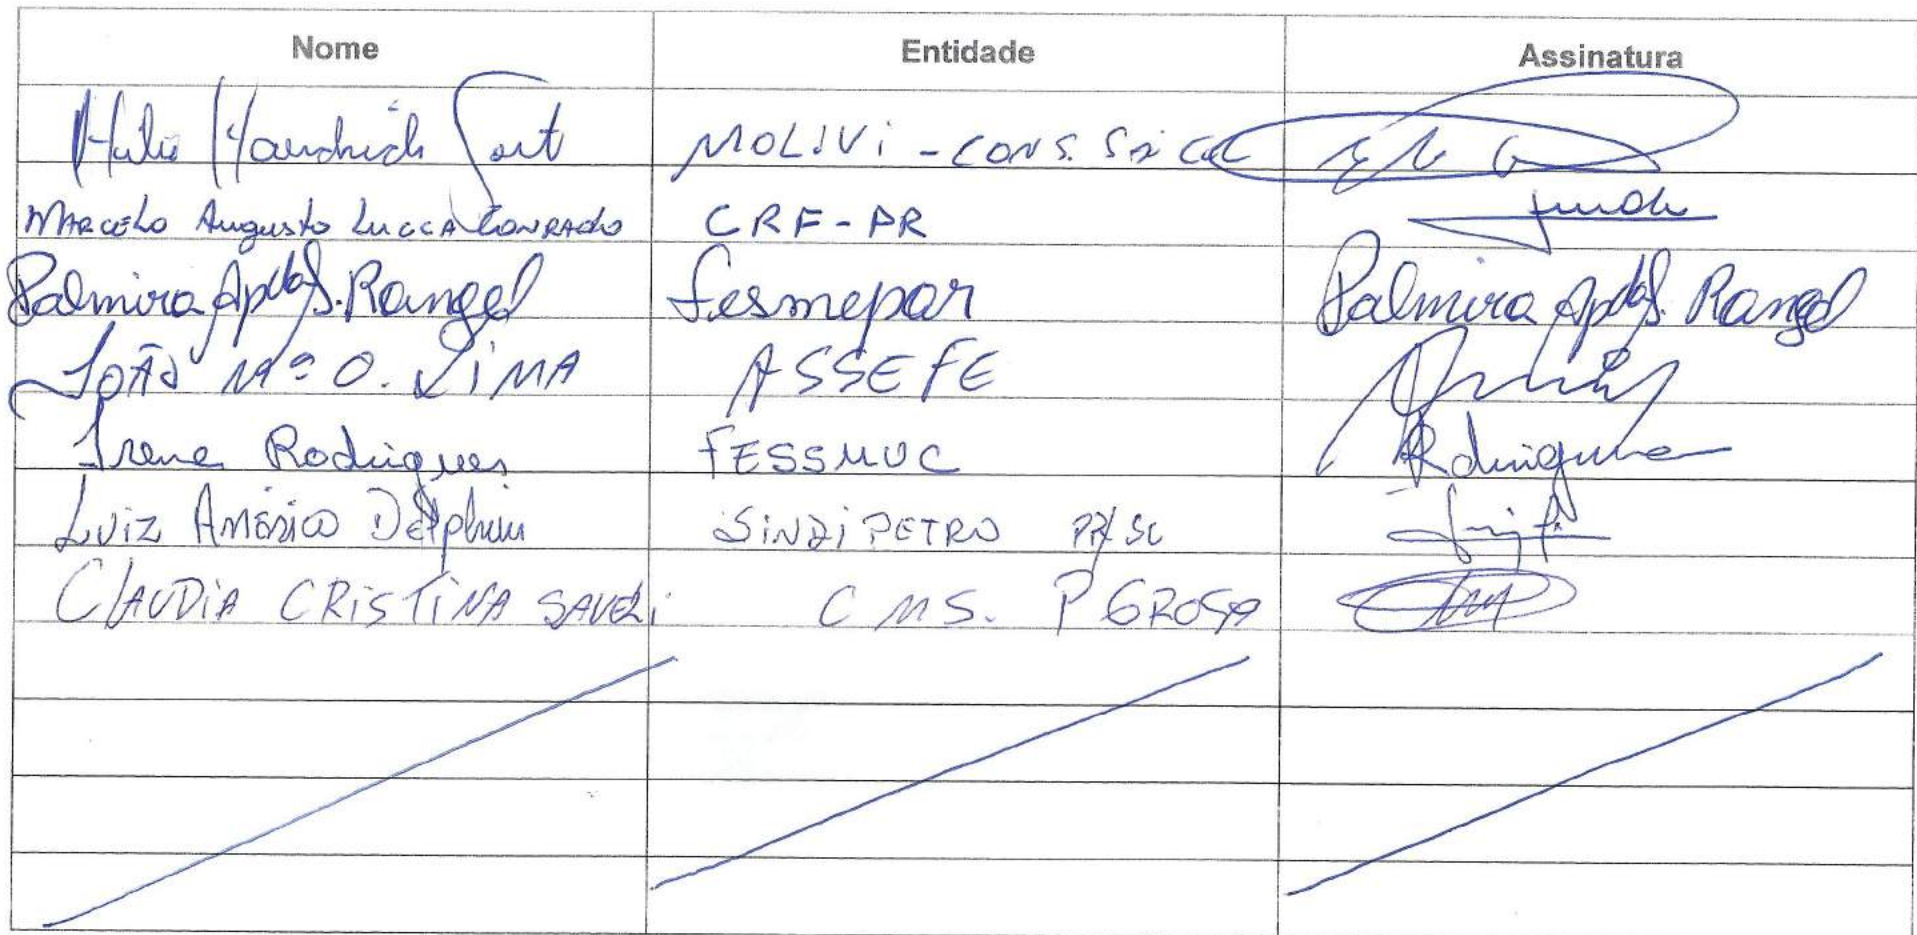 Nome Entidade Assinatura
MOLIVI - CONS.
MARCELO Augusto LUCCA CONRADO CRF-PR
Palmira Apda S. Rangel Fesmepar Palmira Apda S. Rangel
JOÃO Mº O. LIMA ASSEFE
Irene Rodrigues FESSMUC Rodrigues
Luiz Américo Delphim SINDIPETRO PR/SC
CLAUDIA CRISTINA SAVELI CMS. P GROSSA